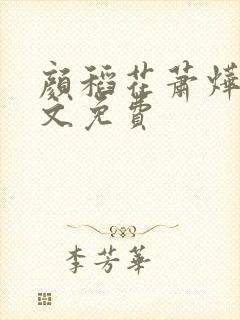 顏稻花蕭燁
文免費
李芳華